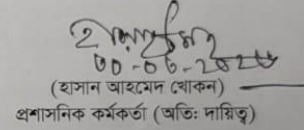 ৩০-০৬-২০২৫
(হাসান আহমেদ খোকন)
প্রশাসনিক কর্মকর্তা (অতিঃ দায়িত্ব)